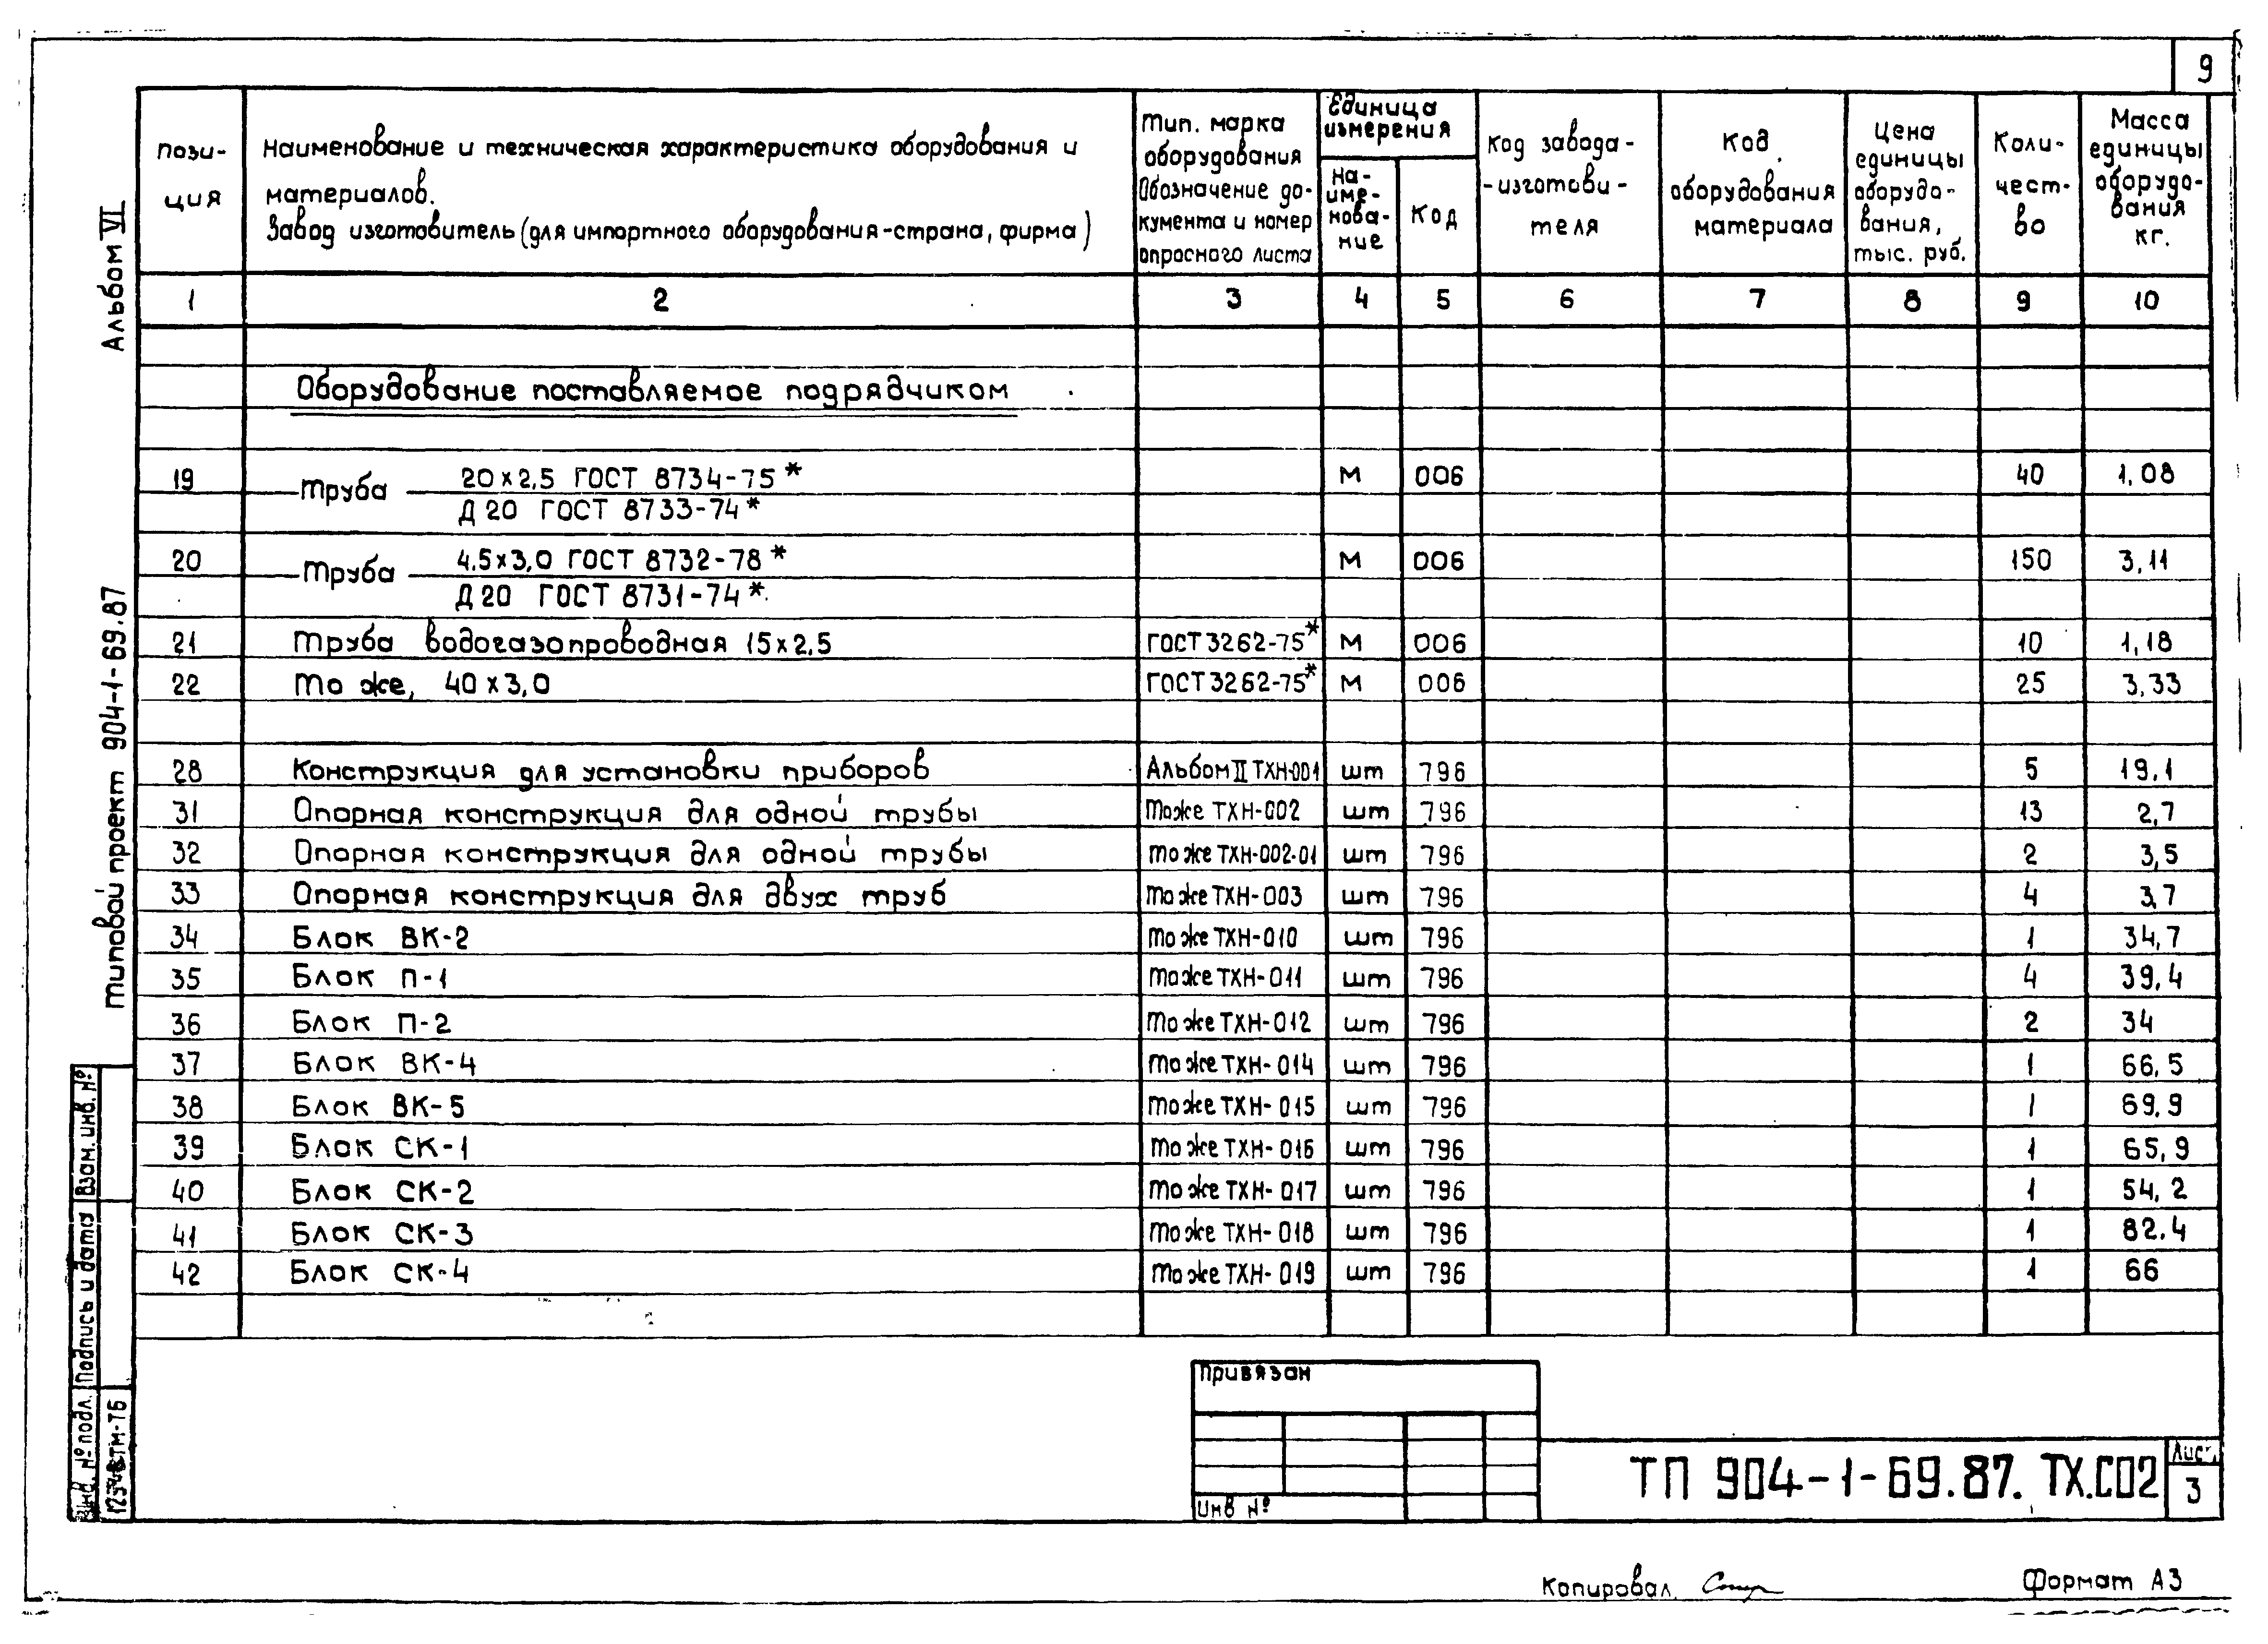 9
Альбом VI
типовой проект 904-1-69.87
пози-
ция
Наименование и техническая характеристика оборудования и
материалов.
Завод изготовитель (для импортного оборудования-страна, фирма)
Тип. марка
оборудования
Обозначение до-
кумента и номер
опросного листа
Единица
измерения
На-
име-
нова-
ние
Код
Код завода-
-изготови-
теля
Код
оборудования
материала
Цена
единицы
оборудо-
вания,
тыс. руб.
Коли-
чест-
во
Масса
единицы
оборудо-
вания
кг.
1 2 3 4 5 6 7 8 9 10
Оборудование поставляемое подрядчиком
19 Труба 20х2,5 ГОСТ 8734-75* М 006 40 1,08
Д 20 ГОСТ 8733-74*
20 Труба 4.5х3,0 ГОСТ 8732-78* М 006 150 3,11
Д 20 ГОСТ 8731-74*
21 Труба водогазопроводная 15х2,5 ГОСТ 3262-75* М 006 10 1,18
22 То же, 40х3,0 ГОСТ 3262-75* М 006 25 3,33
28 Конструкция для установки приборов Альбом II ТХН-001 шт 796 5 19,1
31 Опорная конструкция для одной трубы То же ТХН-002 шт 796 13 2,7
32 Опорная конструкция для одной трубы То же ТХН-002-01 шт 796 2 3,5
33 Опорная конструкция для двух труб То же ТХН-003 шт 796 4 3,7
34 Блок ВК-2 То же ТХН-010 шт 796 1 34,7
35 Блок П-1 То же ТХН-011 шт 796 4 39,4
36 Блок П-2 То же ТХН-012 шт 796 2 34
37 Блок ВК-4 То же ТХН-014 шт 796 1 66,5
38 Блок ВК-5 То же ТХН-015 шт 796 1 69,9
39 Блок СК-1 То же ТХН-016 шт 796 1 65,9
40 Блок СК-2 То же ТХН-017 шт 796 1 54,2
41 Блок СК-3 То же ТХН-018 шт 796 1 82.4
42 Блок СК-4 То же ТХН-019 шт 796 1 66
Взам. инв. №
Подпись и дата
Инв. № подл.
Привязан
Инв №
ТП 904-1-69.87. ТХ.СО2
Лист
3
Копировал
Формат А3